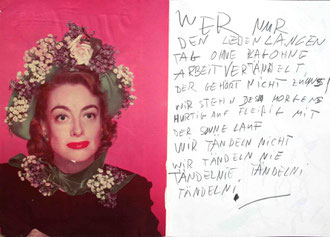 WER NUR
DEN LEBENLANGEN
TAG OHNE
ARBEIT VERTÄNDELT,
DER GEHÖRT NICHT ZU UNS!
WIR STEHN DES MORKENS
HURTIG AUF FLEIßIG MIT
DER SONNE LAUF
WIR TÄNDELN NICHT
WIR TÄNDELN NIE
TÄNDELNIE, TÄNDELNI
TÄNDELNI